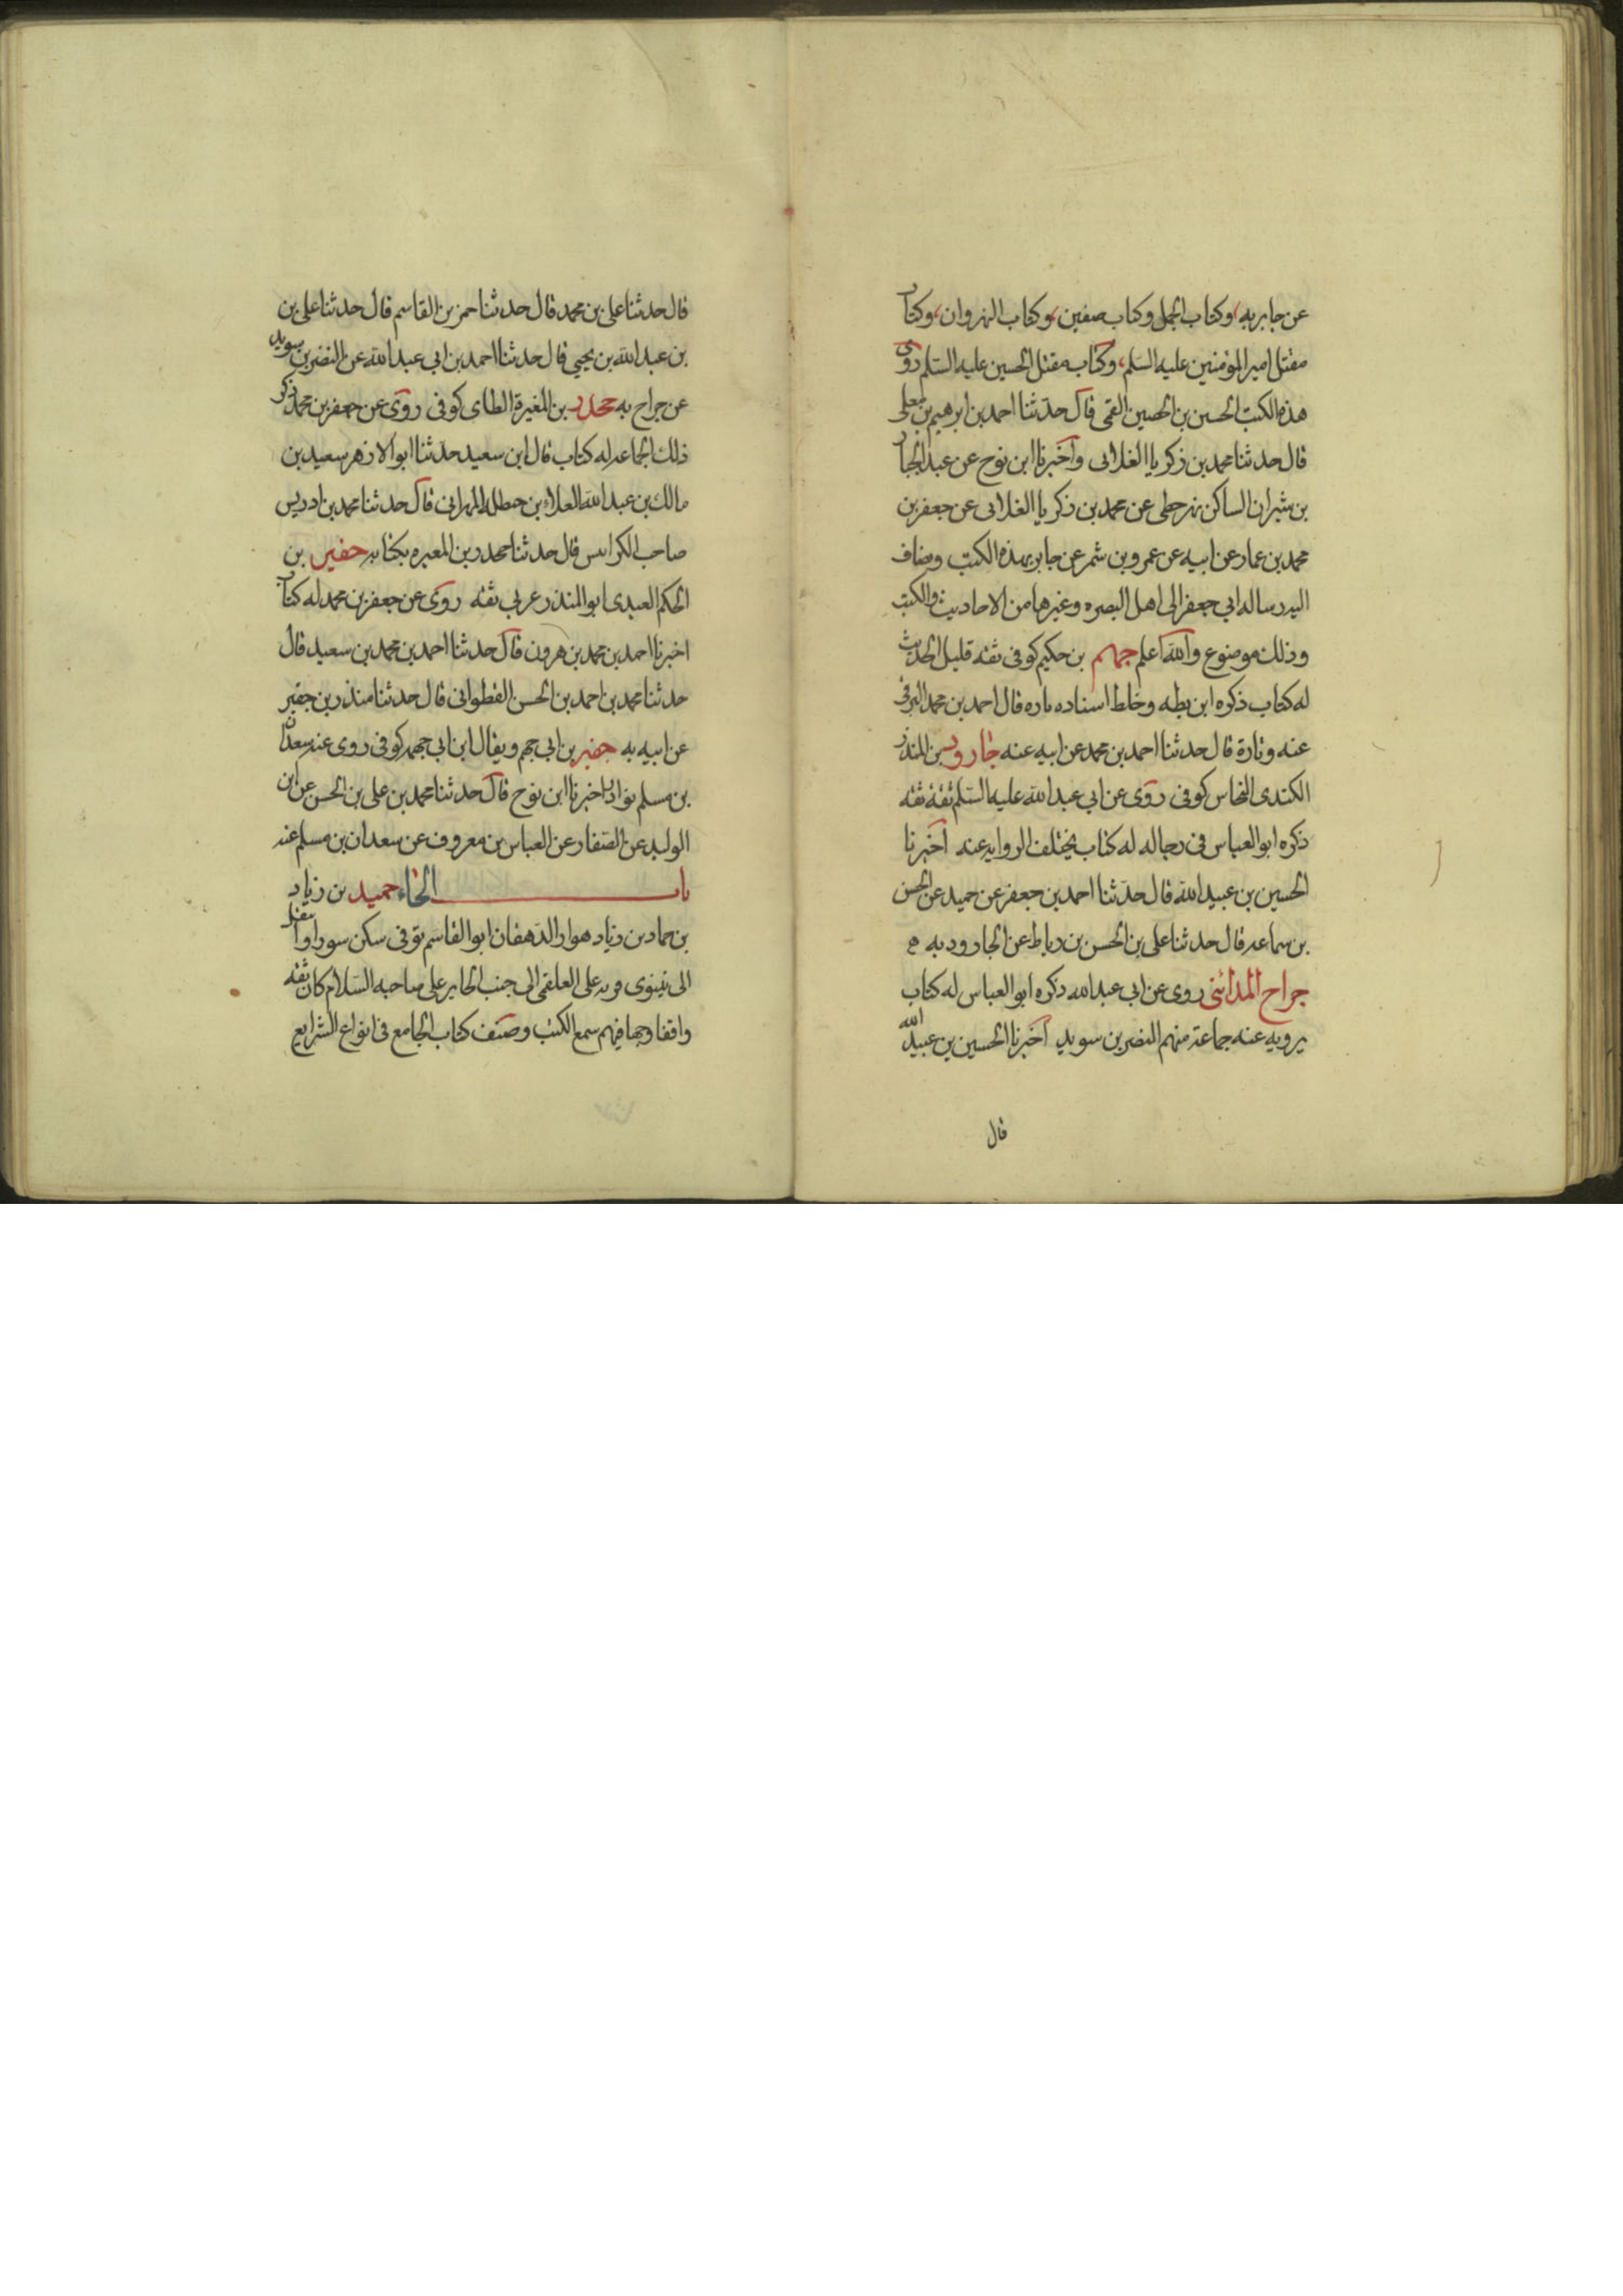 عن جابر به وكتاب الجمل وكتاب صفين وكتاب النهروان وكتاب
مقتل امير المؤمنين عليه السلم وكتاب مقتل الحسين عليه السلم روى
هذه الكتب الحسين بن الحصين القمى قال حدثنا احمد بن ابرهيم بن معلى
قال حدثنا محمد بن زكريا الغلابى وأخبرنا ابن نوح عن عبد الجبار
بن شيران الساكن نهر خطى عن محمد بن زكريا الغلابى عن جعفر بن
محمد بن عمار عن ابيه عن عمرو بن شمر عن جابر بهذه الكتب ويضاف
اليه رساله ابي جعفر الى اهل البصره وغيرها من الاحاديث والكتب
وذلك موضوع والله اعلم جهم بن حكيم كوفى ثقه قليل الحديث
له كتاب ذكره ابن بطه وخلط اسناده تاره قال احمد بن محمد البرقى
عنه وتارة قال حدثنا احمد بن محمد عن ابيه عنه جارود بن المنذر
الكندى النخاس كوفى روى عن ابي عبد الله عليه السلم ثقة ثقه
ذكره ابو العباس فى رجاله له كتاب يختلف الروايه عنه أخبرنا
الحسين بن عبيد الله قال حدثنا احمد بن جعفر عن حميد عن الحسن
بن سماعه قال حدثنا على بن الحسن بن رباط عن الجارود به
جراح المدائنى روى عن ابى عبد الله ذكره ابو العباس له كتاب
يرويه عنه جماعة منهم النضر بن سويد أخبرنا الحسين بن عبيد الله
قال
قال حدثنا على بن محمد قال حدثنا حمز بن القاسم قال حدثنا على بن
بن عبد الله بن يحيى قال حدثنا احمد بن ابى عبد الله عن النضر بن سويد
عن جراح به جحدر بن المغيرة الطاى كوفى روى عن جعفر بن محمد ذكر
ذلك الجماعه له كتاب قال ابن سعيد حدثنا ابو الازهر سعيد بن
مالك بن عبد الله العلاء بن حنظلة المهرانى قال حدثنا محمد بن ادريس
صاحب الكرابيس قال حدثنا جحدر بن المغيره بكتابه جفير بن
الحكم العبدى ابو المنذر عربي ثقه روى عن جعفر بن محمد له كتاب
اخبرنا احمد بن محمد بن هرون قال حدثنا احمد بن محمد بن سعيد قال
حدثنا محمد بن احمد بن الحسن القطوانى قال حدثنا منذر بن جفير
عن ابيه به جهم بن ابى جهم ويقال ابن ابى جهمه كوفى روى عنه سعدان
بن مسلم نوادر اخبرنا ابن نوح قال حدثنا محمد بن على بن الحسن عن ابن
الوليد عن الصفار عن العباس بن معروف عن سعدان بن مسلم عنه
باب الحاء حميد بن زياد
بن حماد بن زياد هوار الدهقان ابو القاسم كوفى سكن سورا وانتقل
الى نينوى قريه على العلقمى الى جنب الحاير على صاحبه السلام كان ثقه
واقفا وجها فيهم سمع الكتب وصنف كتاب الجامع فى انواع الشرايع